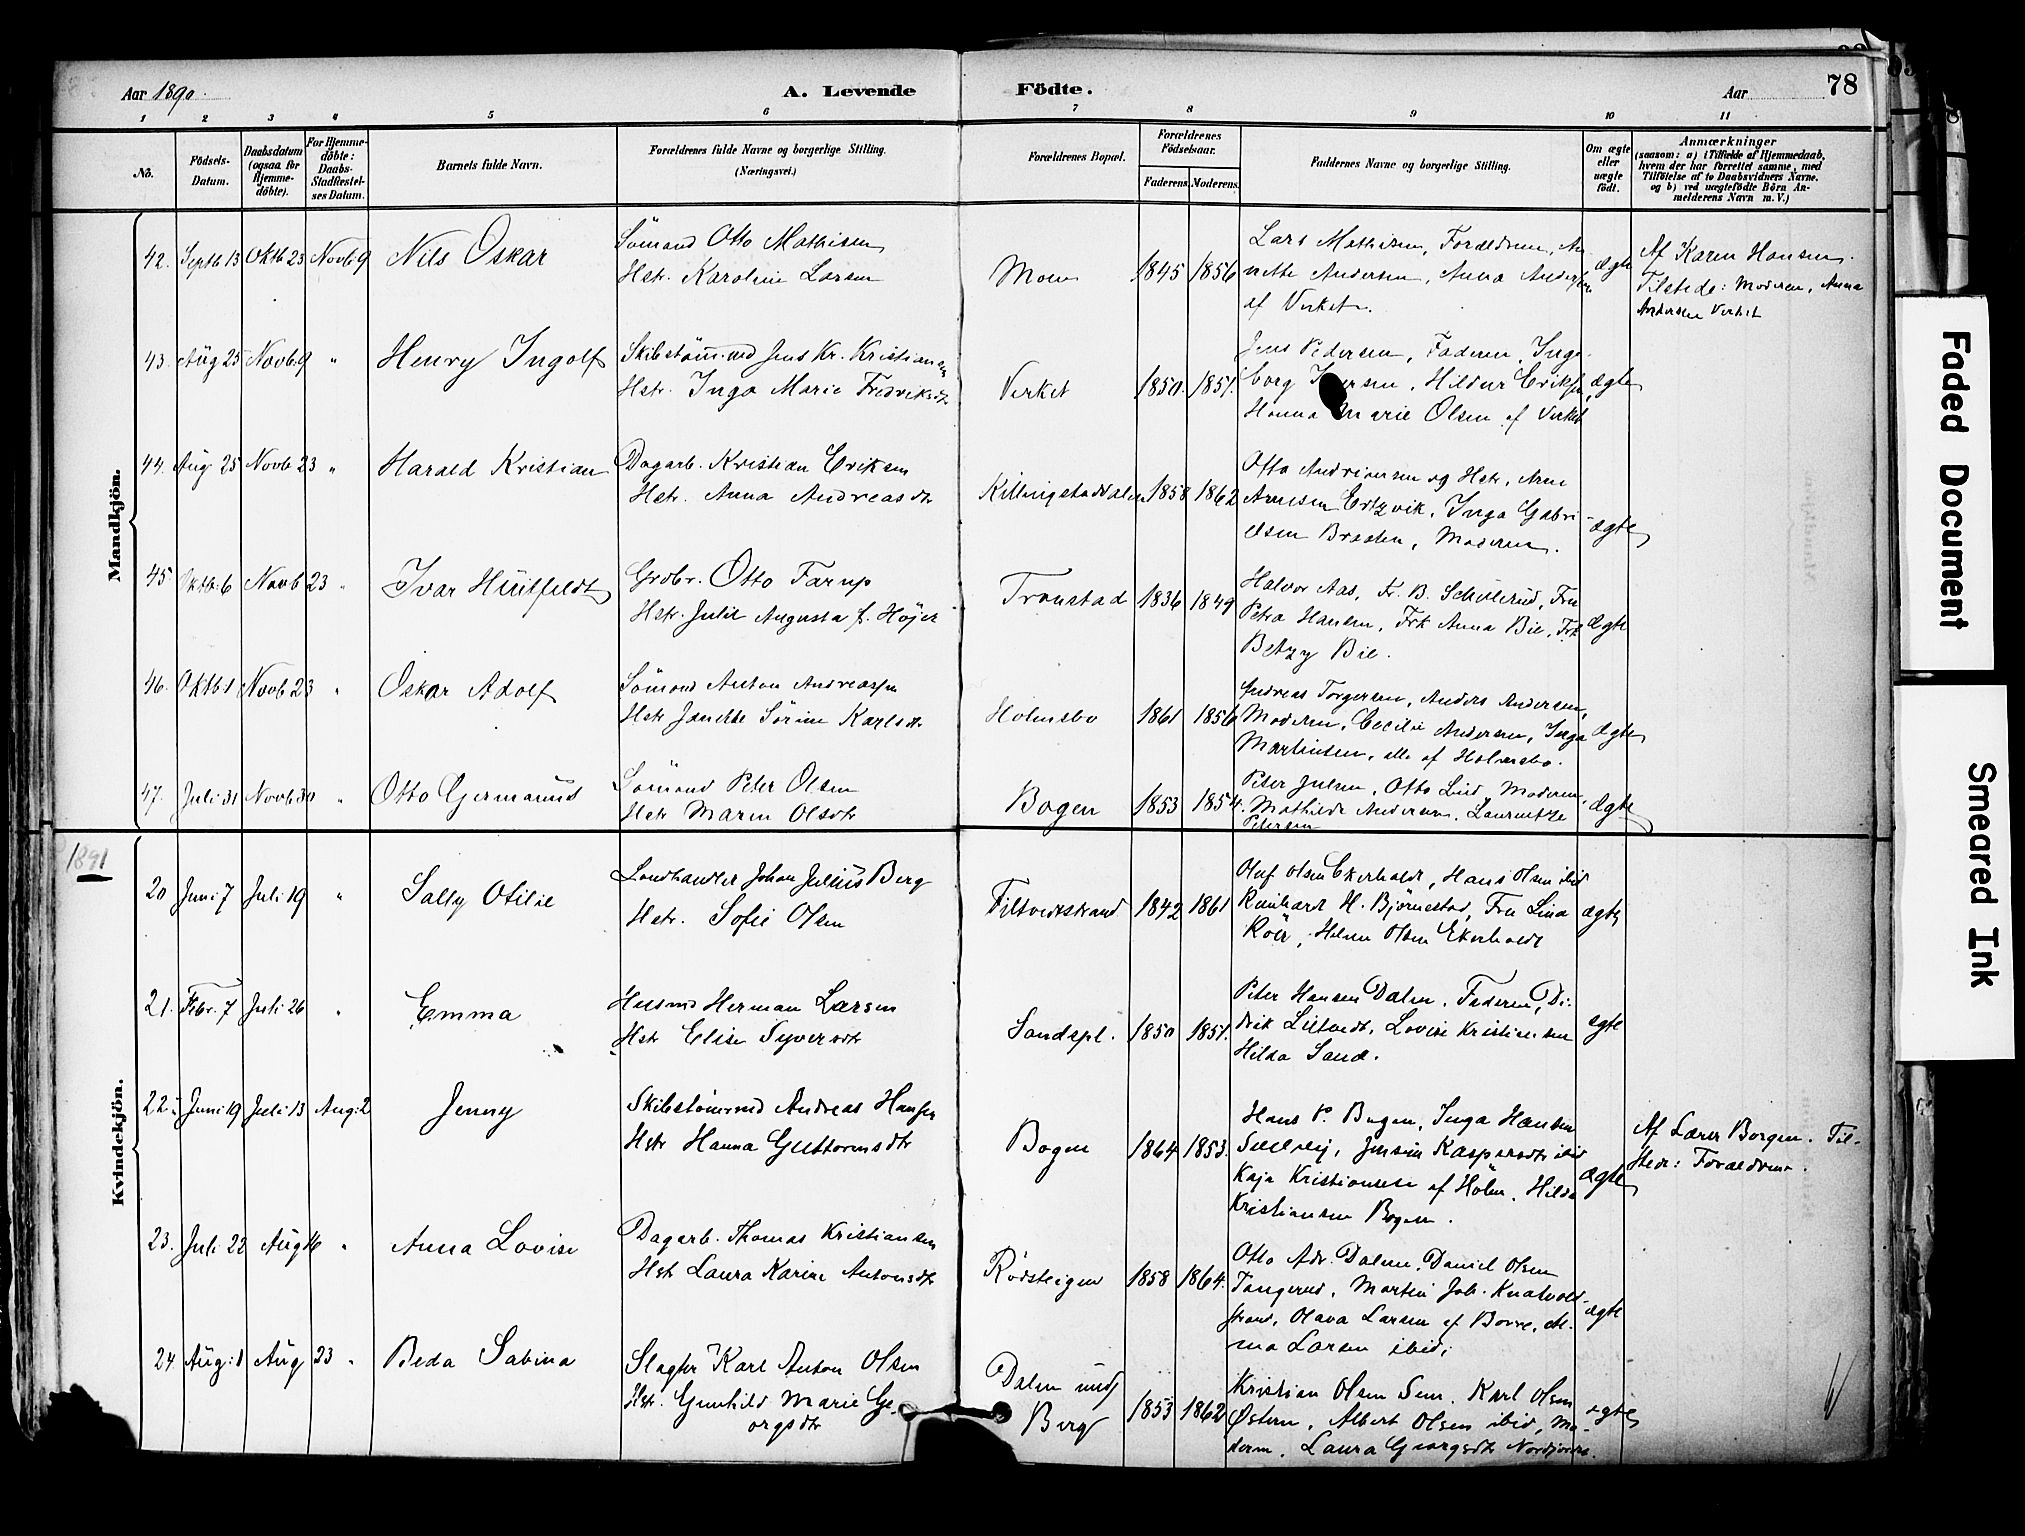 Aar 1890. A. Levende Födte. Aar 78
1 2 3 4 5 6 7 8 9 10 11
No.
Födsels-Datum.
Daabsdatum (ogsaa for Hjemme-döbte).
For Hjemme-döbte: Daabs-Stadfæstel-ses Datum.
Barnets fulde Navn.
Forældrenes fulde Navne og borgerlige Stilling. (Næringsvei.)
Forældrenes Bopæl.
Forældrenes Födselsaar.
Faderens. Moderens.
Faddernes Navne og borgerlige Stilling.
Om ægte eller uægte födt.
Anmærkninger
(saasom: a) i Tilfælde af Hjemmedaab,
hvem der har forrettet samme, med
Tilföielse af to Daabsvidners Navne.
og b) ved uægtefödte Börn An-
melderens Navn m. V.)
Mandkjön.
42. Septb 13 Oktb 23 Novb. 9 Nils Oskar
Sömand Otto Mathisen
Hstr. Karoline Larsen
Moen 1845 1856
Lars Mathisen, Forældrene, An-
nette Andersen, Anna Andersen
af Verket.
ægte
Af Karen Hansen.
Tilstede: Moderen, Anna
Andersen Verket
43. Aug 25 Novb. 9 " Henry Ingolf
Skibstømmd Jens Kr. Kristiansen
Hstr. Inga Marie Fredriksdtr
Verket 1850. 1851.
Jens Pedersen, Faderen, Inge-
borg Hildur Eriksen,
Hanna Marie Olsen af Verket
ægte
44. Aug 25 Novb 23 " Harald Kristian
Dagarb. Kristian Eriksen
Hstr. Anna Andreasdtr
Killingstaddalen 1858 1862
Otto Andreasen og Hstr, Arne
Arnesen Ertzvik, Inga Gabri-
elsen Brasten, Moderen.
ægte
45 Oktb. 6 Novb 23 " Ivar Huitfeldt
Grdbr. Otto Farup
Hstr. Julie Augusta f. Højer
Tronstad 1836 1849
Halvor Aas, Fr. B. Schillerud, Fru
Petra Hansen, Frk Anna Bie, Frk
Betzy Bie.
ægte
46. Oktb 1 Novb 23 " Oskar Adolf
Sömand Anton Andreassen
Hstr Janikke Sörine Karlsdtr
Holmsbo 1861 1856
Andreas Torgersen, Anders Andersen,
Moderen, Cecilie Andersen, Inga
Martinsen, alle af Holmsbo.
ægte
47. Juli 31 Novb 30 " Otto Germanus
Sömand Peter Olsen
Hstr Maren Olsdtr
Bogen 1853 1854.
Peter Julsen, Otto Lied, Moderen,
Mathilde Andersen, Laurentze
Petersen
ægte
1891
Kvindekjön.
20 Juni 7 Juli 19 " Sally Otilie
Landhandler Johan Julius Berg
Hstr. Sofie Olsen
Tiltvedtstrand 1842 1861
Oluf Olsen Ekerholdt, Hans Olsen ibid
Reinhart H. Bjørnestad, Fru Lina
Röer, Helene Olsen Ekerholdt
ægte
21. Febr. 7 Juli 26 " Emma
Husmd Herman Larsen
Hstr Elise Syversdtr
Sandspl. 1850 1851.
Peter Hansen Dalen, Faderen, Di-
drik Lietvedt, Lovise Kristiansen
Hilda Sand.
ægte
22. Juni 19 Juli 13 Aug. 2 Jenny
Skibstømmd Andreas Hansen
Hstr Hanna Guttormsdtr
Bogen 1864 1853.
Hans P. Bogen, Inga Hansen
Jensine Kaspersdtr ibid
Kaja Kristiansen af Hölen, Hilda
Kristiansen Bogen.
ægte
Af Lærer Borgen. Til-
stede: Forældrene.
23. Juli 22 Aug 16 " Anna Lovise
Dagarb. Thomas Kristiansen
Hstr Laura Karine Antonsdtr
Rödsteigen 1858 1864.
Otto Adr. Dalen, Daniel Olsen
Tangerud, Martin Joh. Knatvold-
strand, Olava Larsen af Borre, Al-
ma Larsen ibid.
ægte
24. Aug: 1 Aug 23 " Beda Sabina
Slagter Karl Anton Olsen
Hstr. Gunhild Marie Ge-
orgsdtr
Dalen und/
Berg 1853 1862
Kristian Olsen Sem, Karl Olsen
Østern, Albert Olsen ibid, Mo-
deren, Laura Georgsdtr
ægte
Faded Document
Smeared Ink